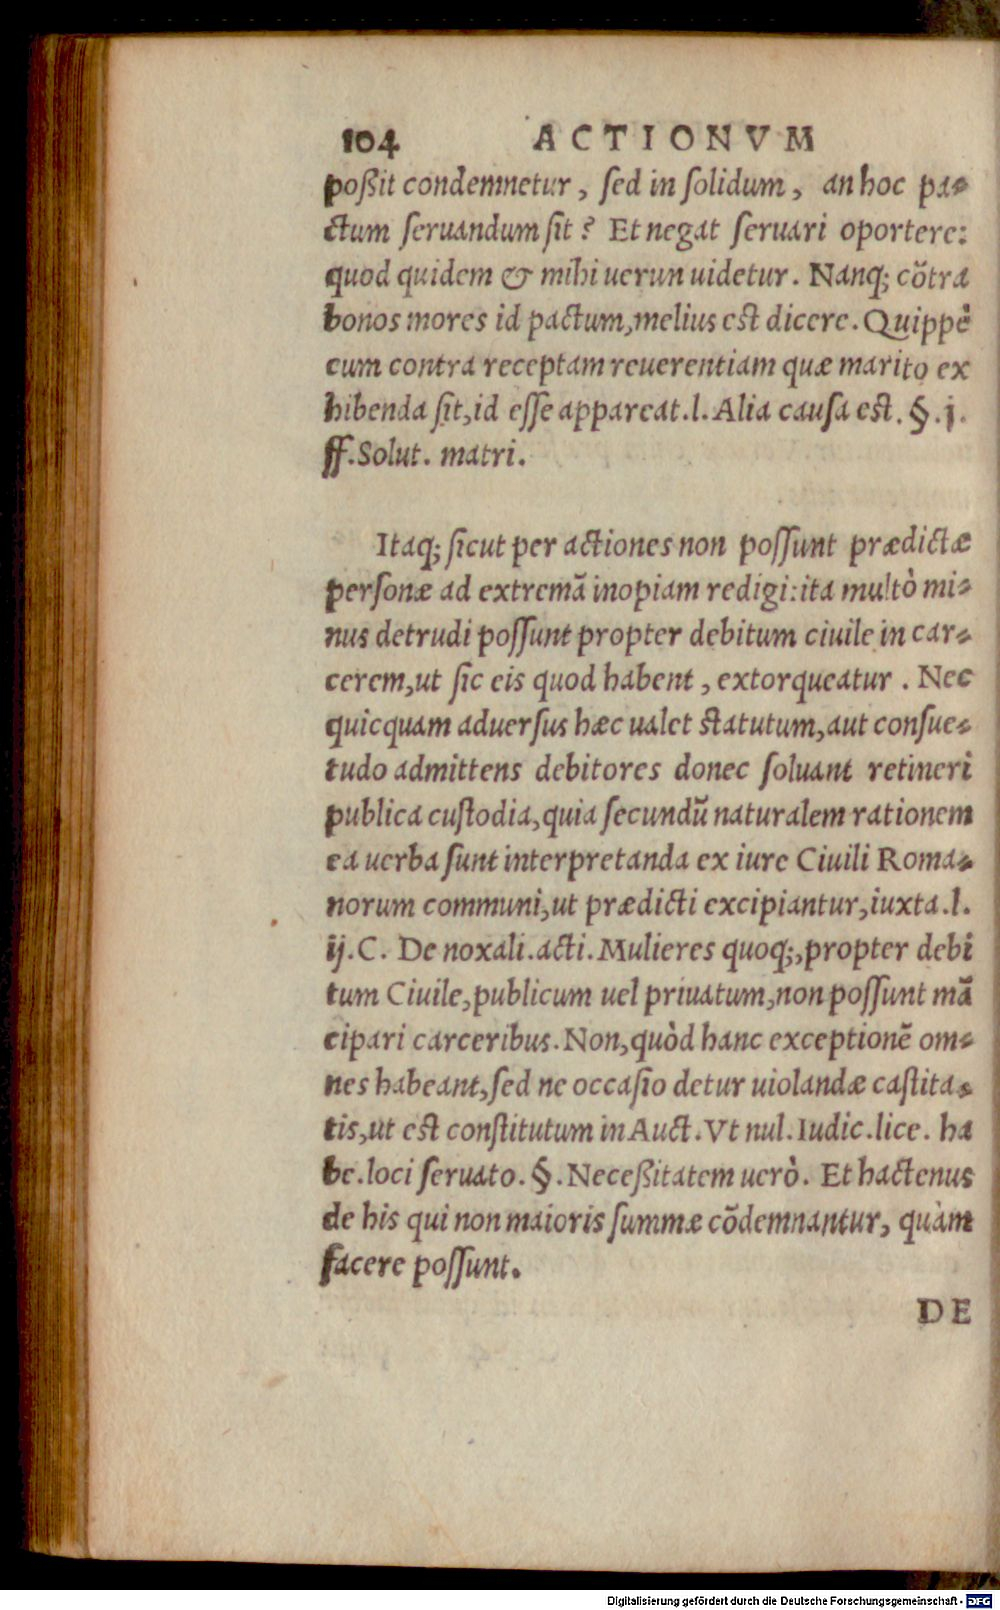 104 ACTIONVM
poßit condemnetur, sed in solidum, an hoc pa-
ctum seruandum sit? Et negat seruari oportere:
quod quidem & mihi uerun uidetur. Nanq; cõtra
bonos mores id pactum, melius est dicere. Quippè
cum contra receptam reuerentiam quæ marito ex
hibenda sit, id esse appareat. l. Alia causa est. §. j.
ff. Solut. matri.
Itaq; sicut per actiones non possunt prædictæ
personæ ad extremã inopiam redigi: ita multò mi-
nus detrudi possunt propter debitum ciuile in car-
cerem, ut sic eis quod habent, extorqueatur. Nec
quicquam aduersus hæc ualet statutum, aut consue-
tudo admittens debitores donec soluant retineri
publica custodia, quia secundũ naturalem rationem
ea uerba sunt interpretanda ex iure Ciuili Roma-
norum communi, ut prædicti excipiantur, iuxta. l.
ij. C. De noxali. acti. Mulieres quoq;, propter debi
tum Ciuile, publicum uel priuatum, non possunt mã
cipari carceribus. Non, quòd hanc exceptionẽ om-
nes habeant, sed ne occasio detur uiolandæ castita-
tis, ut est constitutum in Auct. Vt nul. Iudic. lice. ha
be. loci seruato. §. Neceßitatem uerò. Et hactenus
de his qui non maioris summæ cõdemnantur, quàm
facere possunt.
DE
Digitalisierung gefördert durch die Deutsche Forschungsgemeinschaft - DFG